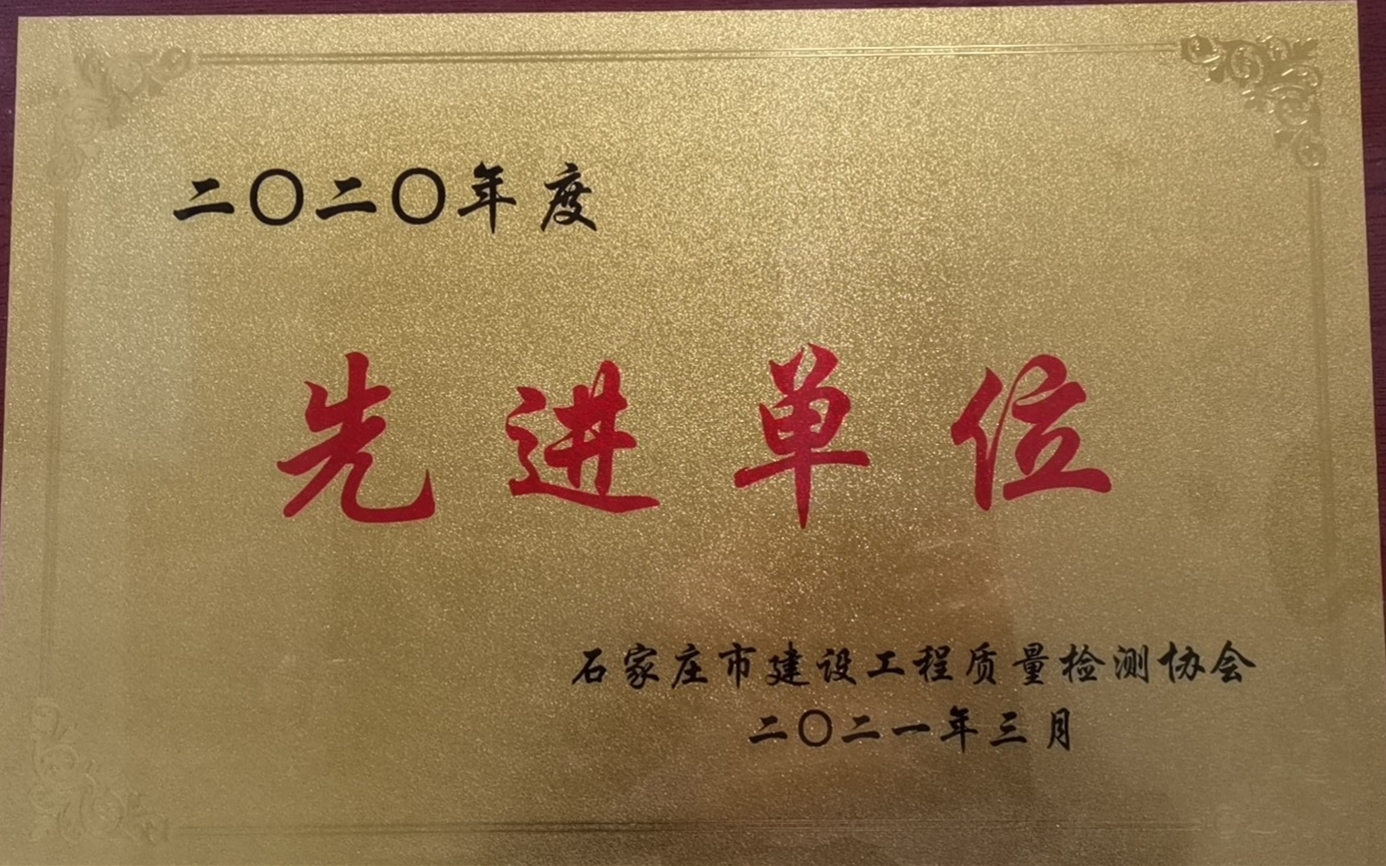 二〇二〇年度
先进单位
石家庄市建设工程质量检测协会
二〇二一年三月